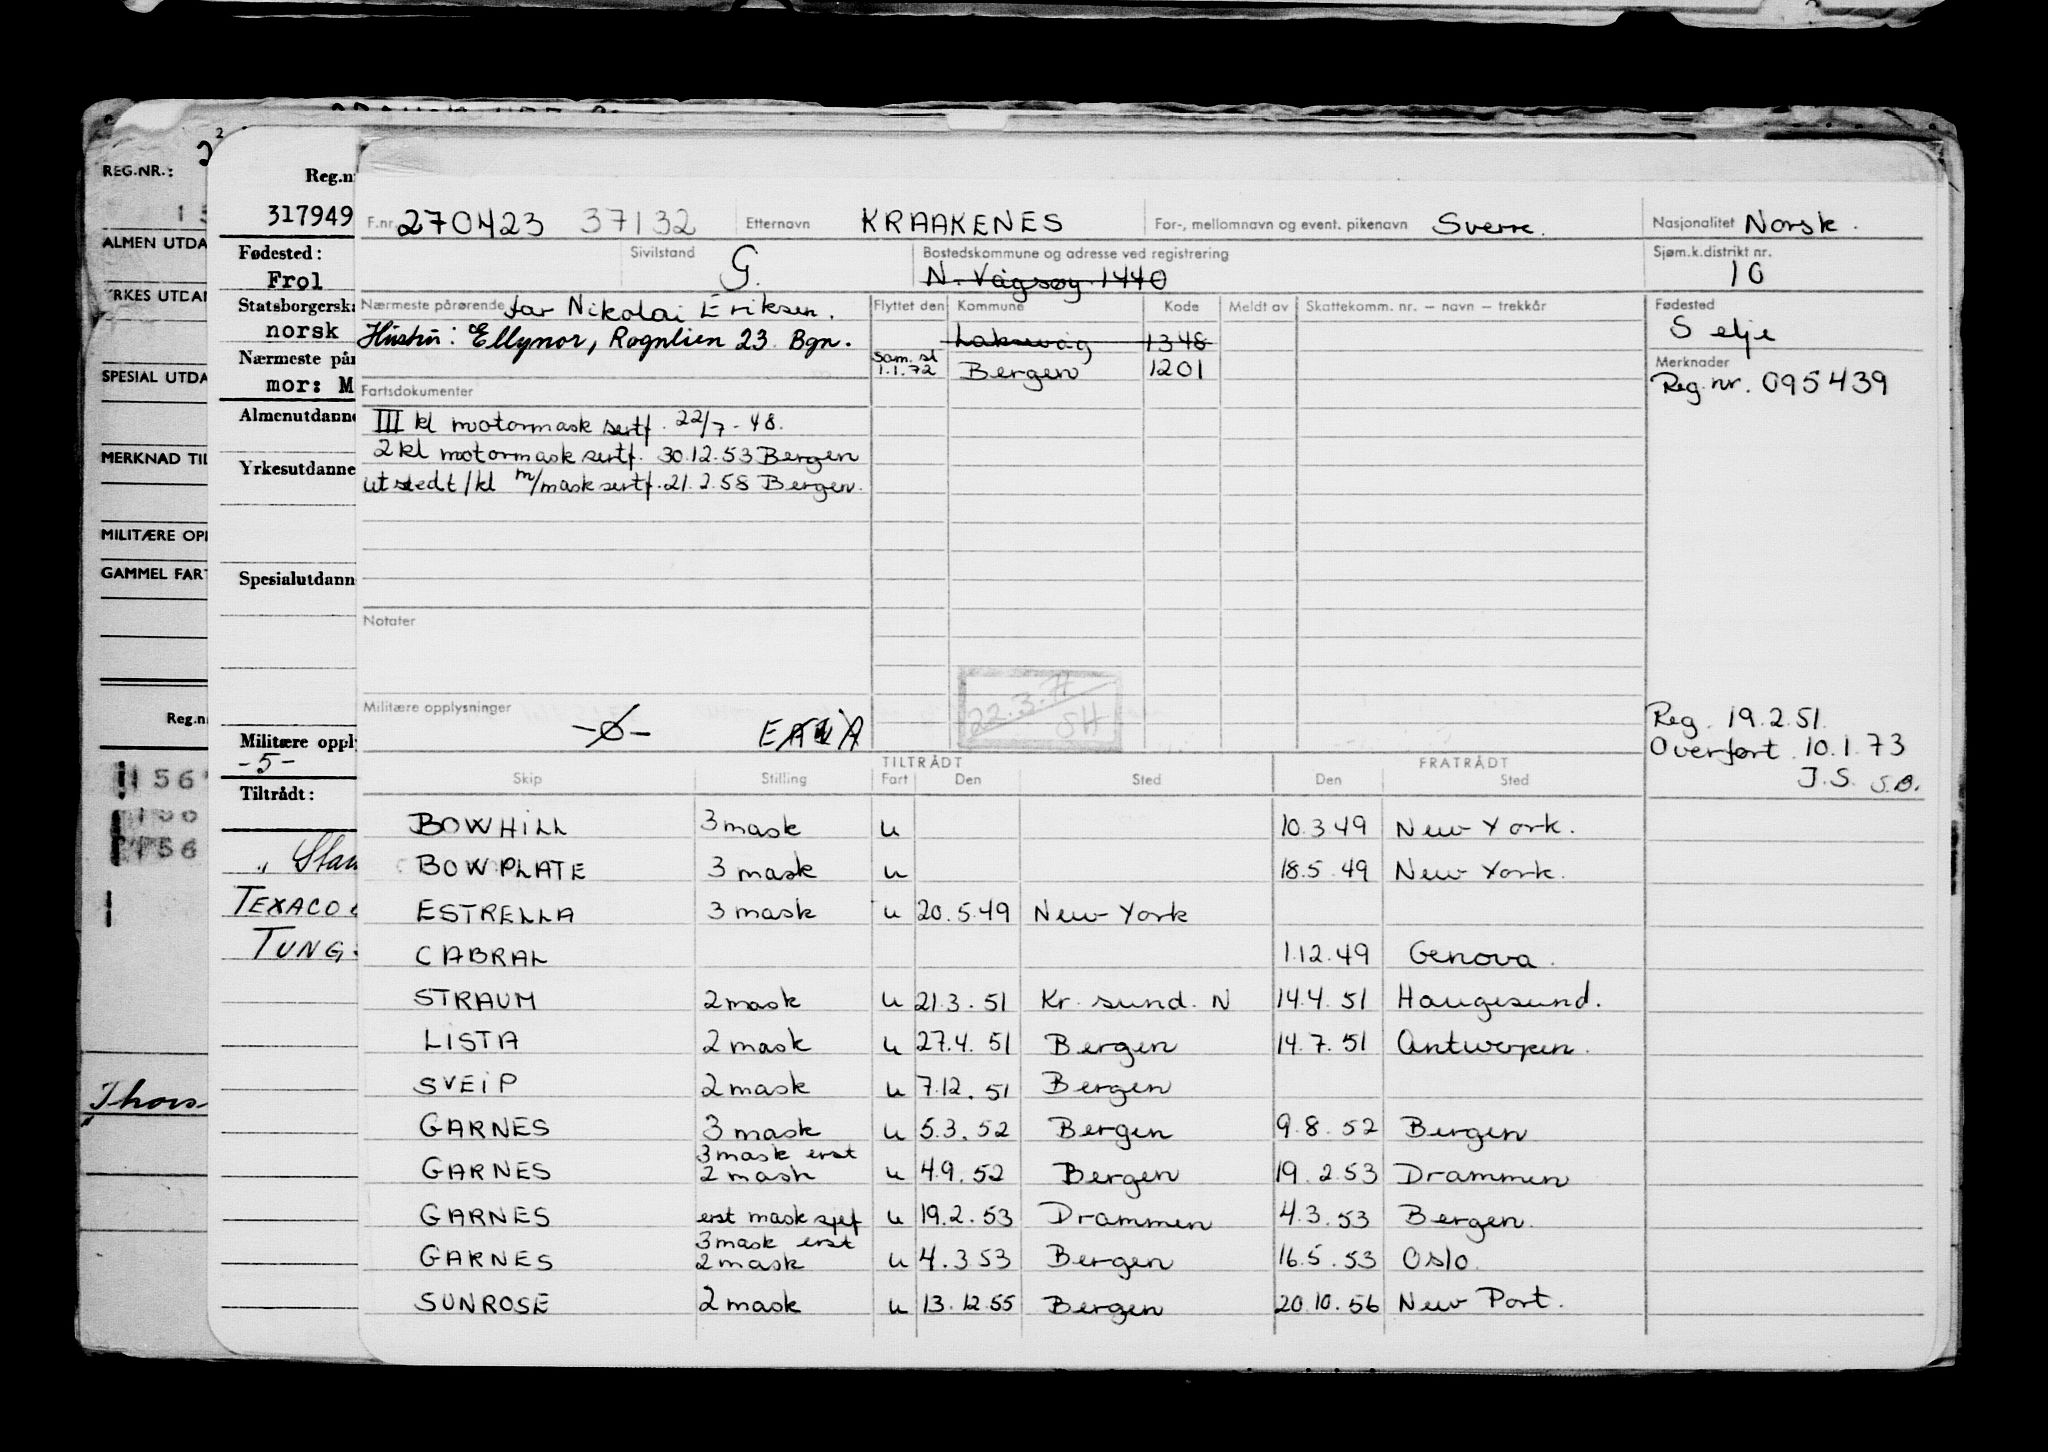 REG.NR.:
ALMEN UTDA
YRKES UTDAN
SPECIAL UTDA
MERKNAD TIL
MILITÆRE OPP
GAMMEL FART
Reg.n
Thors
Reg.n
317949
Fødested:
Frol
Statsborgerska
norsk
Nærmeste pår
mor: M
Almenutdanne
Yrkesutdanne
Spesialutdann
Militære opply
-5-
Tiltrådt:
TEXACO
TUNG
F.nr. 270423 37132 Etternavn KRAAKENES For-, mellomnavn og event. pikenavn Sverre. Nasjonalitet Norsk.
Sivilstand G. Bostedskommune og adresse ved registrering N. Vågsøy 1440 Sjøm.k.distrikt nr. 10
Nærmeste pårørende far Nikolai Eriksen. Flyttet den Kommune Kode Meldt av Skattekomm. nr. – navn – trekkår Fødested
Hustru: Ellynor, Rognlien 23 Bgn. Laksevåg 1348 Selje
sam. sl 1.1.72 Bergen 1201 Merknader
Reg.nr. 095439
Fartsdokumenter
III kl motormask sertf. 22/7-48.
2 kl motormask sertf. 30.12.53 Bergen
utstedt 1 kl m/mask sertf. 21.2.58 Bergen.
Notater
22.3.77
SH
Militære opplysninger
-Ø-
Reg. 19.2.51.
Overført 10.1.73
J.S. S.B.
TILTRÅDT FRATRÅDT
Skip Stilling Fart Den Sted Den Sted
BOWHILL 3 mask u 10.3 49 New York.
BOWPLATE 3 mask u 18.5 49 New York.
ESTRELLA 3 mask u 20.5.49 New York
CABRAL 1.12.49 Genova.
STRAUM 2 mask u 21.3.51 Kr. sund. N 14.4.51 Haugesund.
LISTA 2 mask u 27.4.51 Bergen 14.7.51 Antwerpen.
SVEIP 2 mask u 7.12.51 Bergen
GARNES 3 mask u 5.3.52 Bergen 9.8.52 Bergen
GARNES 3 mask erst 2 mask u 4.9.52 Bergen 19.2.53 Drammen
GARNES erst mask sjef u 19.2.53 Drammen 4.3.53 Bergen.
GARNES 3 mask erst 2 mask u 4.3 53 Bergen 16.5.53 Oslo.
SUNROSE 2 mask u 13.12.55 Bergen 20.10.56 New Port.